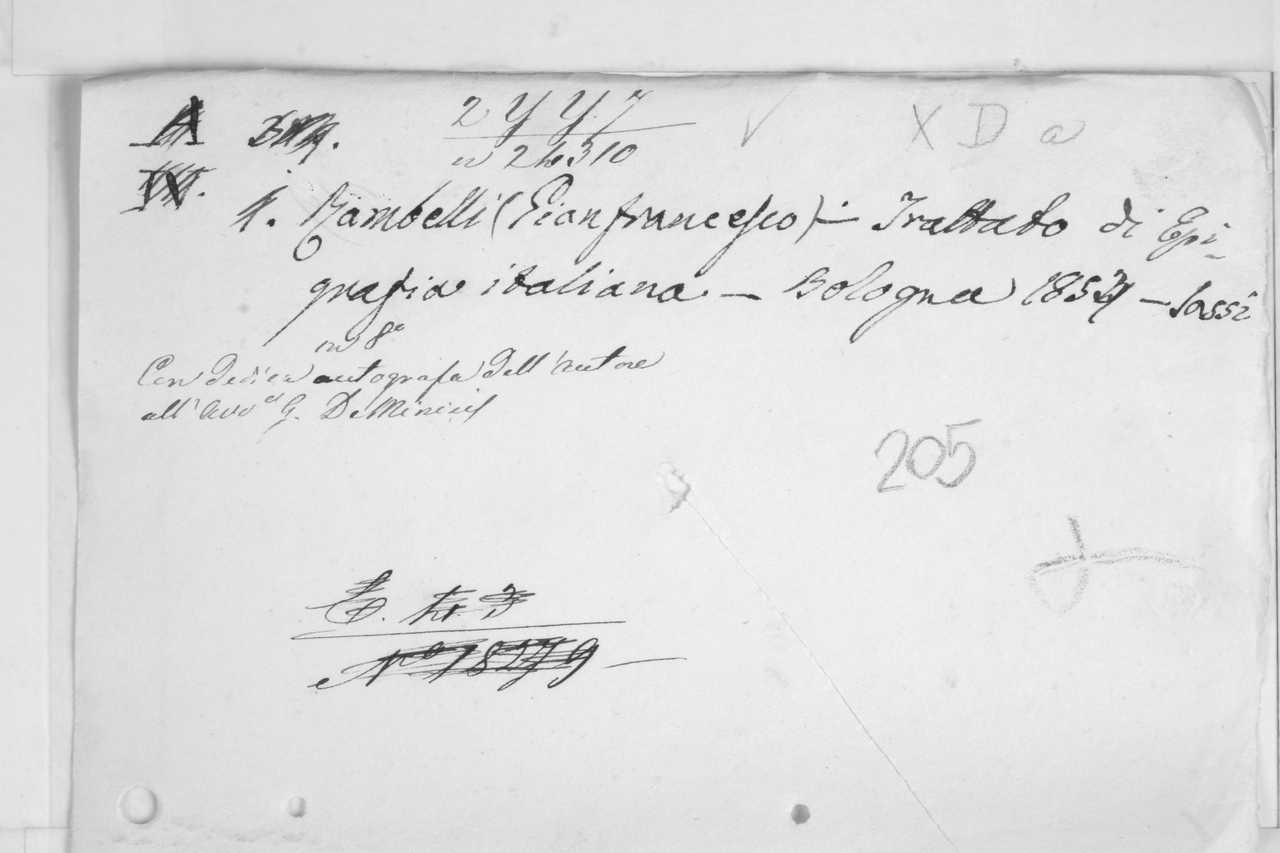 2 Y Y. 7
n 24310
X D a
1. Rambelli (Gianfrancesco) — Trattato di Epi-
grafia italiana — Bologna 1853 — Sassi
in 8°
Con dedica autografa dell'Autore
all'Avv° G. De Minicis
205
N° 18279